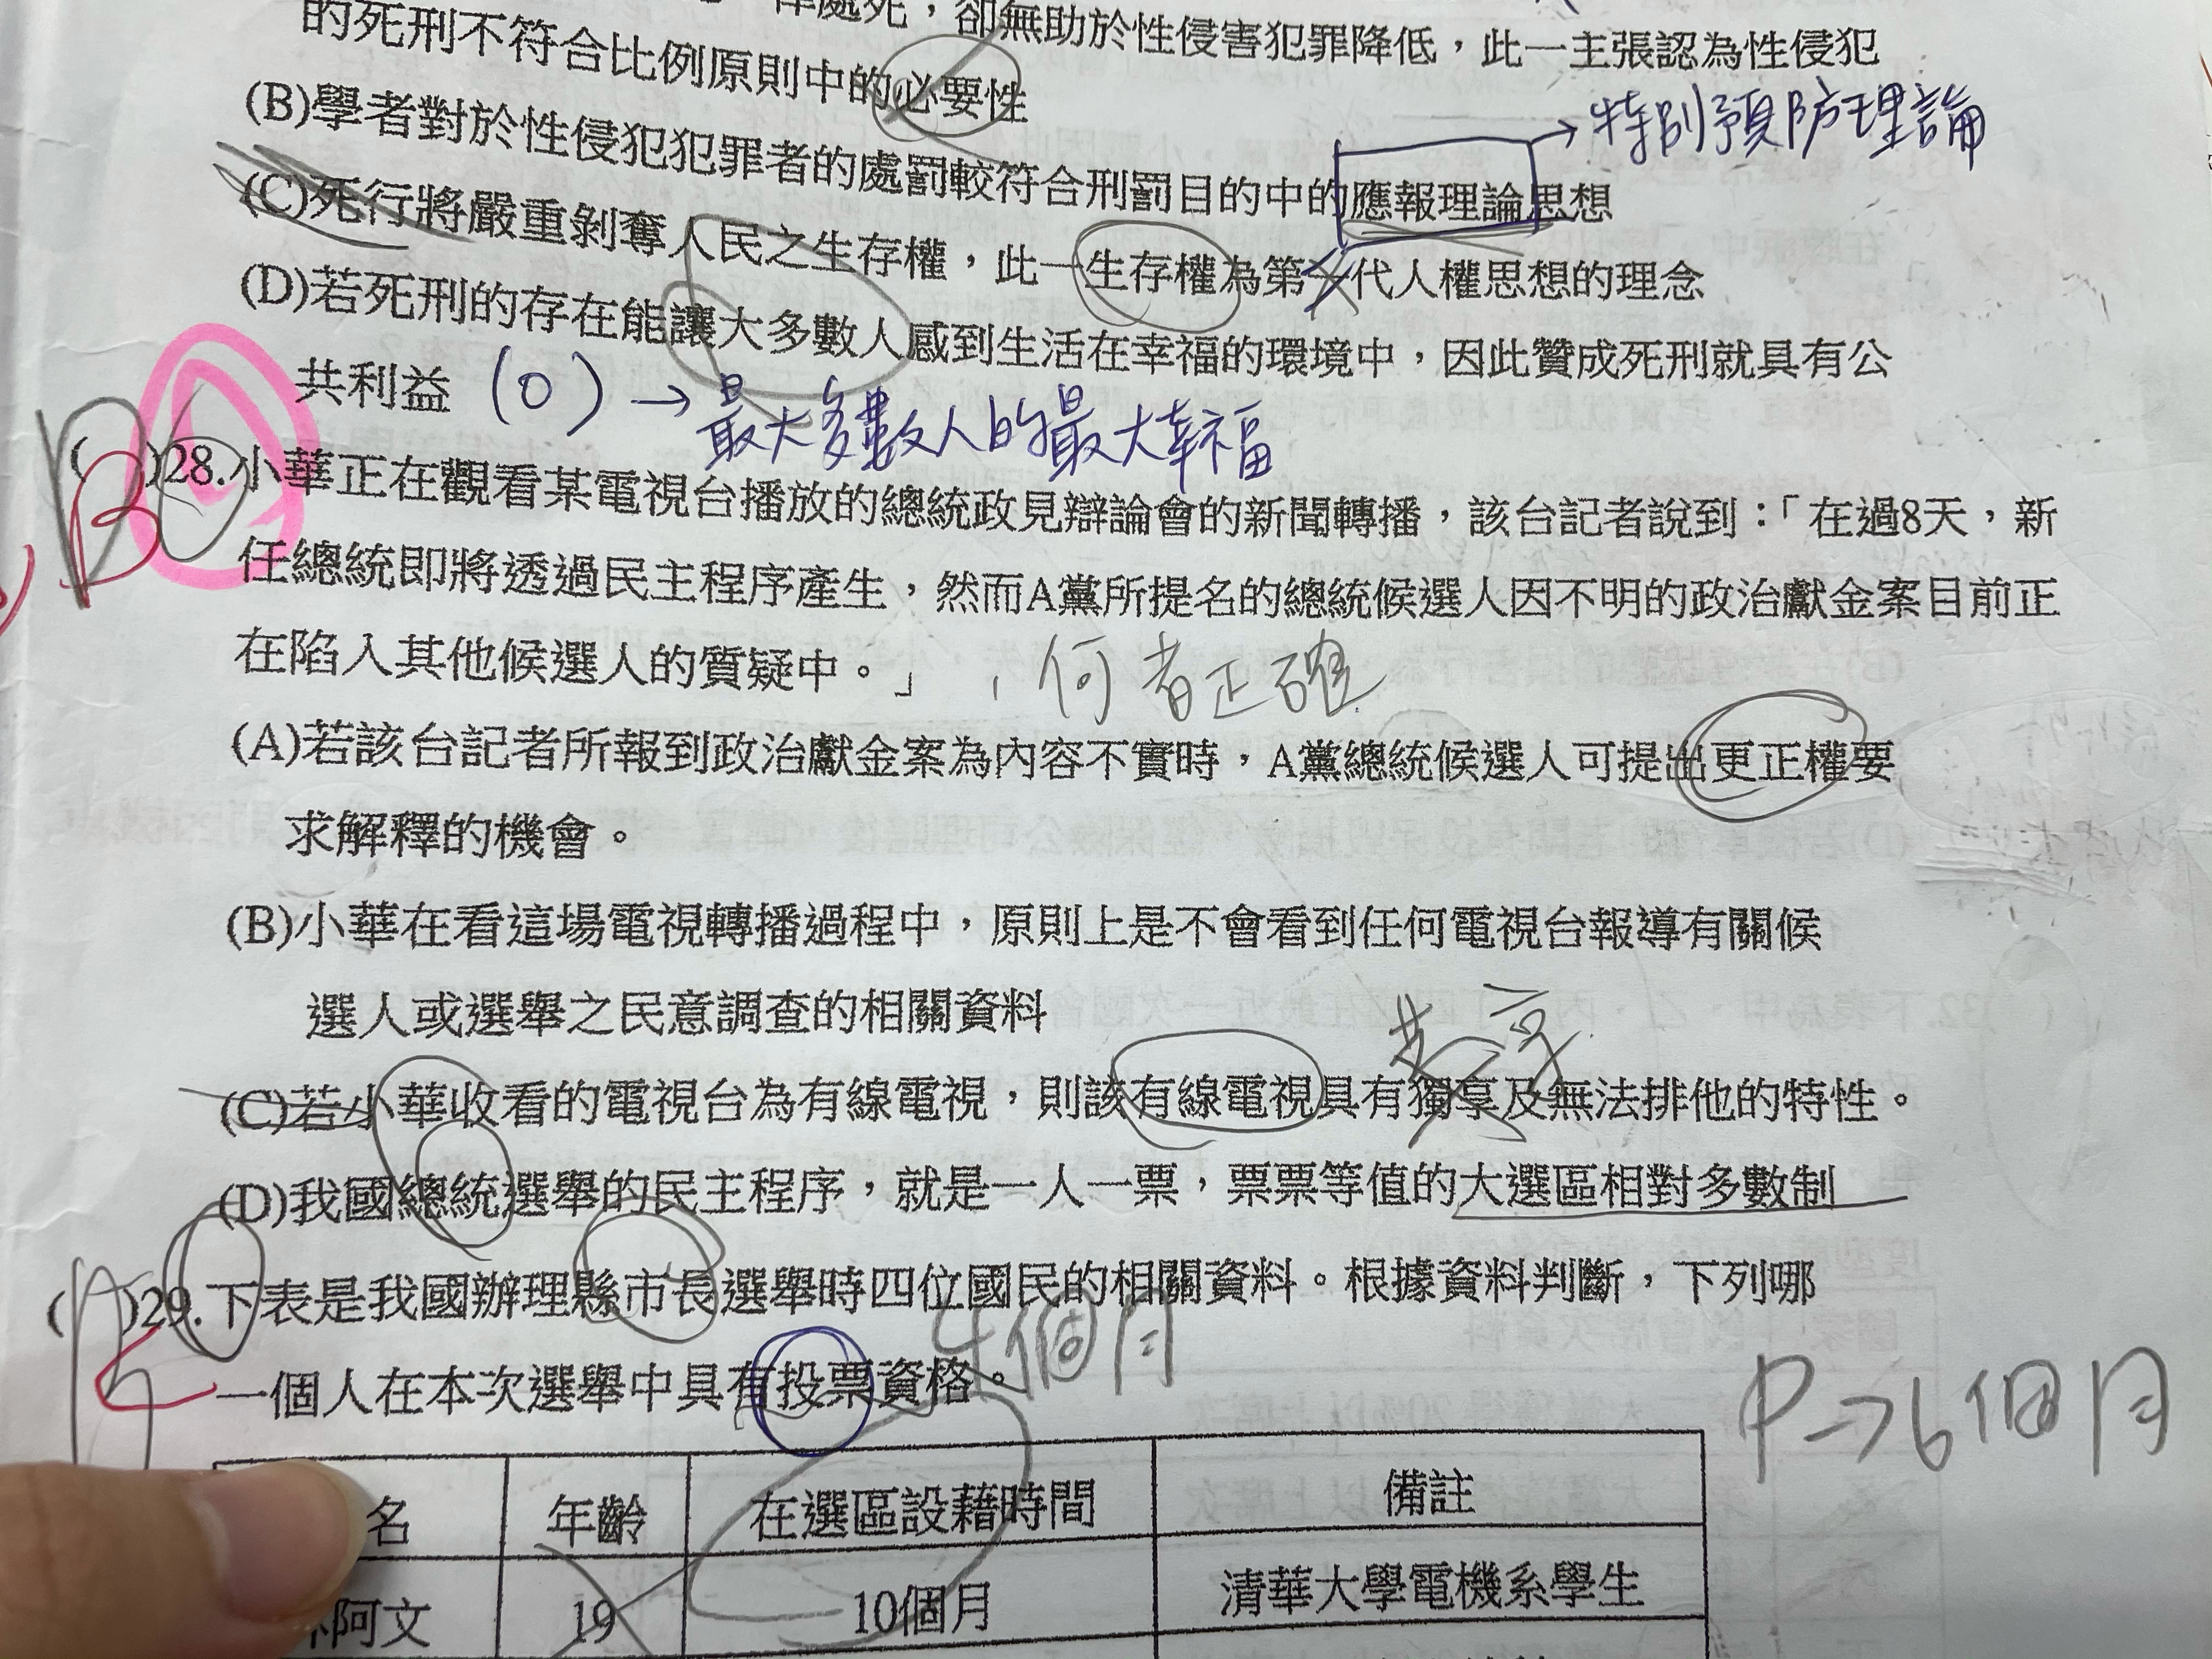 律處死，卻無助於性侵害犯罪降低，此一主張認為性侵犯
的死刑不符合比例原則中的必要性
(B)學者對於性侵犯犯罪者的處罰較符合刑罰目的中的應報理論思想
→特別預防理論
(C)死行將嚴重剝奪人民之生存權，此一生存權為第一代人權思想的理念
(D)若死刑的存在能讓大多數人感到生活在幸福的環境中，因此贊成死刑就具有公
共利益 (O) → 最大多數人的最大幸福
B
( )28.小華正在觀看某電視台播放的總統政見辯論會的新聞轉播，該台記者說到：「在過8天，新
任總統即將透過民主程序產生，然而A黨所提名的總統候選人因不明的政治獻金案目前正
在陷入其他候選人的質疑中。」，何者正確
(A)若該台記者所報到政治獻金案為內容不實時，A黨總統候選人可提出更正權要
求解釋的機會。
(B)小華在看這場電視轉播過程中，原則上是不會看到任何電視台報導有關候
選人或選舉之民意調查的相關資料
共享
(C)若小華收看的電視台為有線電視，則該有線電視具有獨享及無法排他的特性。
(D)我國總統選舉的民主程序，就是一人一票，票票等值的大選區相對多數制
( )29.下表是我國辦理縣市長選舉時四位國民的相關資料。根據資料判斷，下列哪
一個人在本次選舉中具有投票資格。
4個月
P→6個月
名 年齡 在選區設藉時間 備註
阿文 19 10個月 清華大學電機系學生